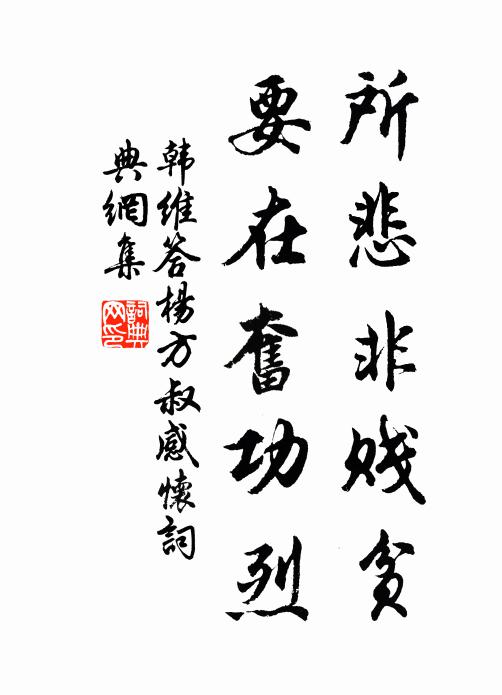 所悲非贱贫
要在奮功烈
韩維答楊方叔感懷詞
典網集
詞典网印